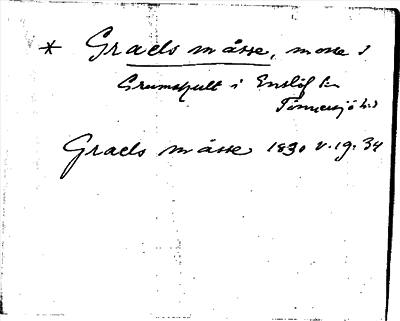 * Graels måsse, mosse i
Grumshult i Enslöf sn
Tönnersjö hd
Graels måsse 1830 v. 19. 34